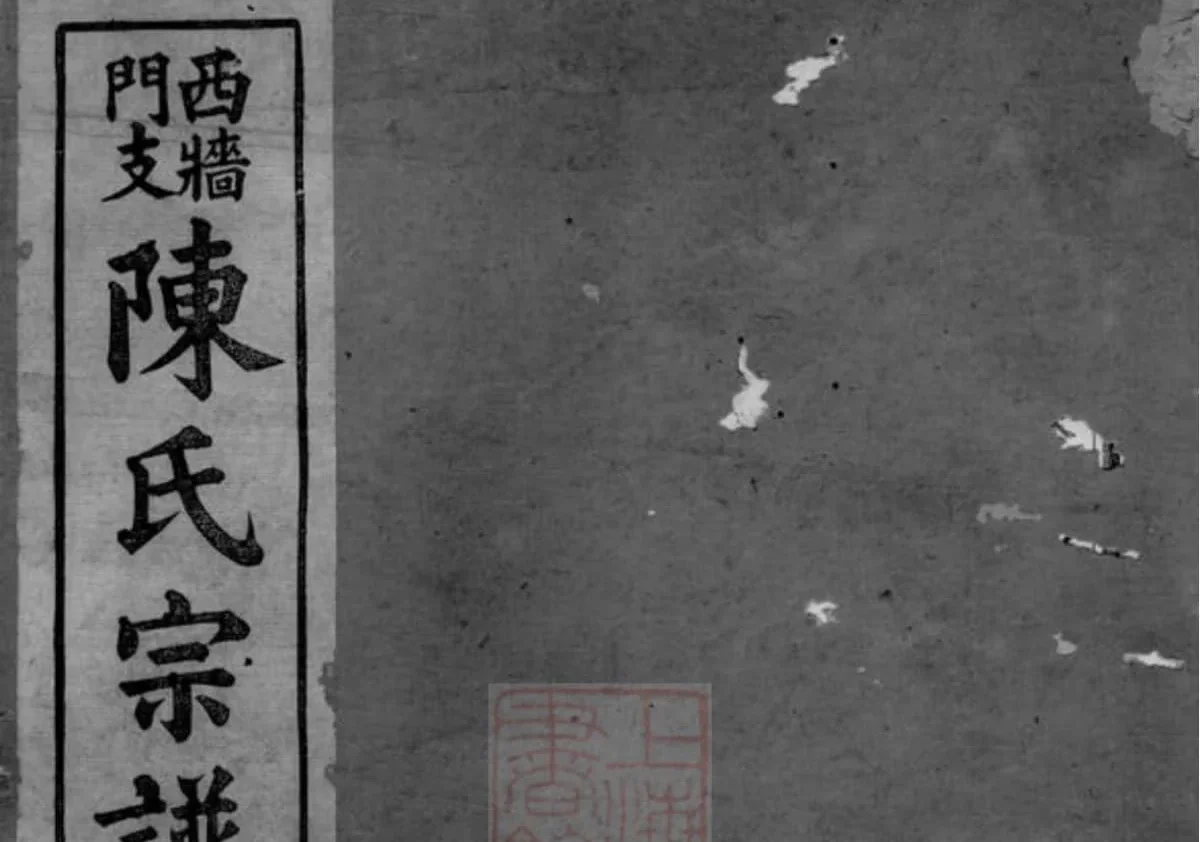 西牆
門支
陳氏宗譜
上海
書